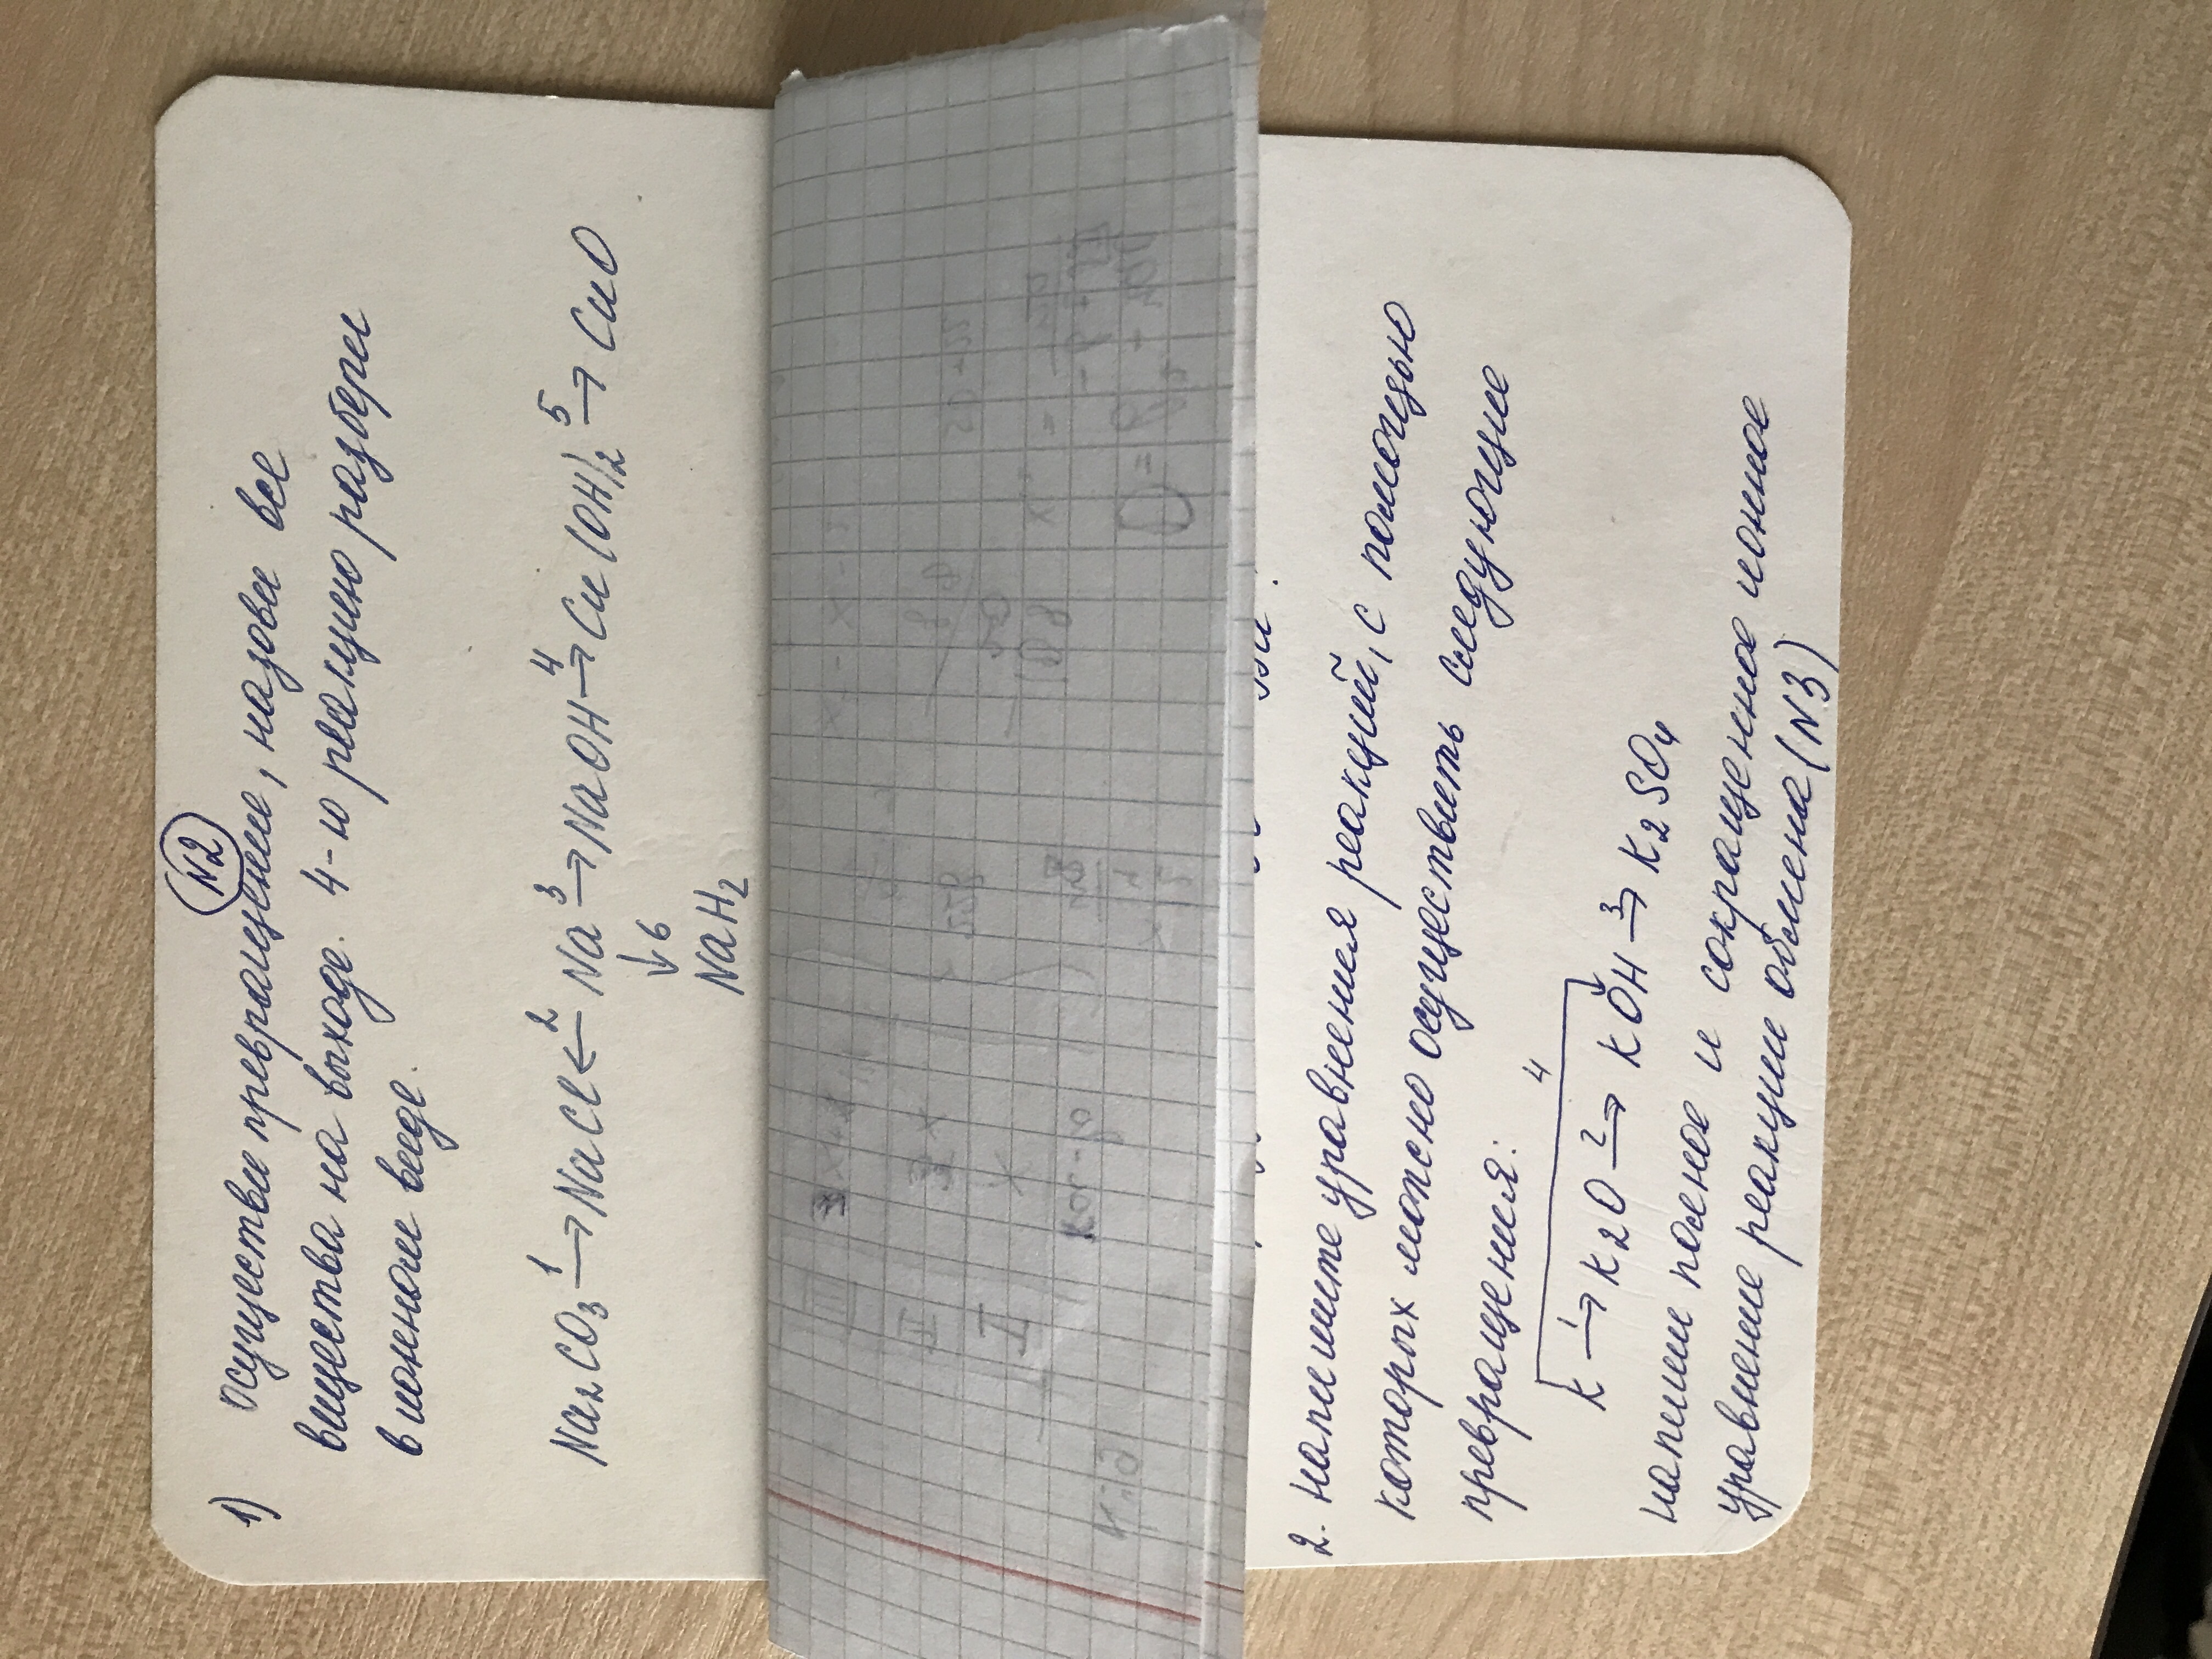 N2
1) осуществи превращение, назови все
вещества на выходе. 4-ю реакцию разбери
в ионном виде.
Na₂CO₃ —1→ NaCl ←2— Na —3→ NaOH —4→ Cu(OH)₂ —5→ CuO
↓6
NaH₂
2. напишите уравнения реакций, с помощью
которых можно осуществить следующие
превращения:
4
K —1→ K₂O —2→ KOH —3→ K₂SO₄
напиши полное и сокращенное ионное
уравнение реакции обмена (N3)